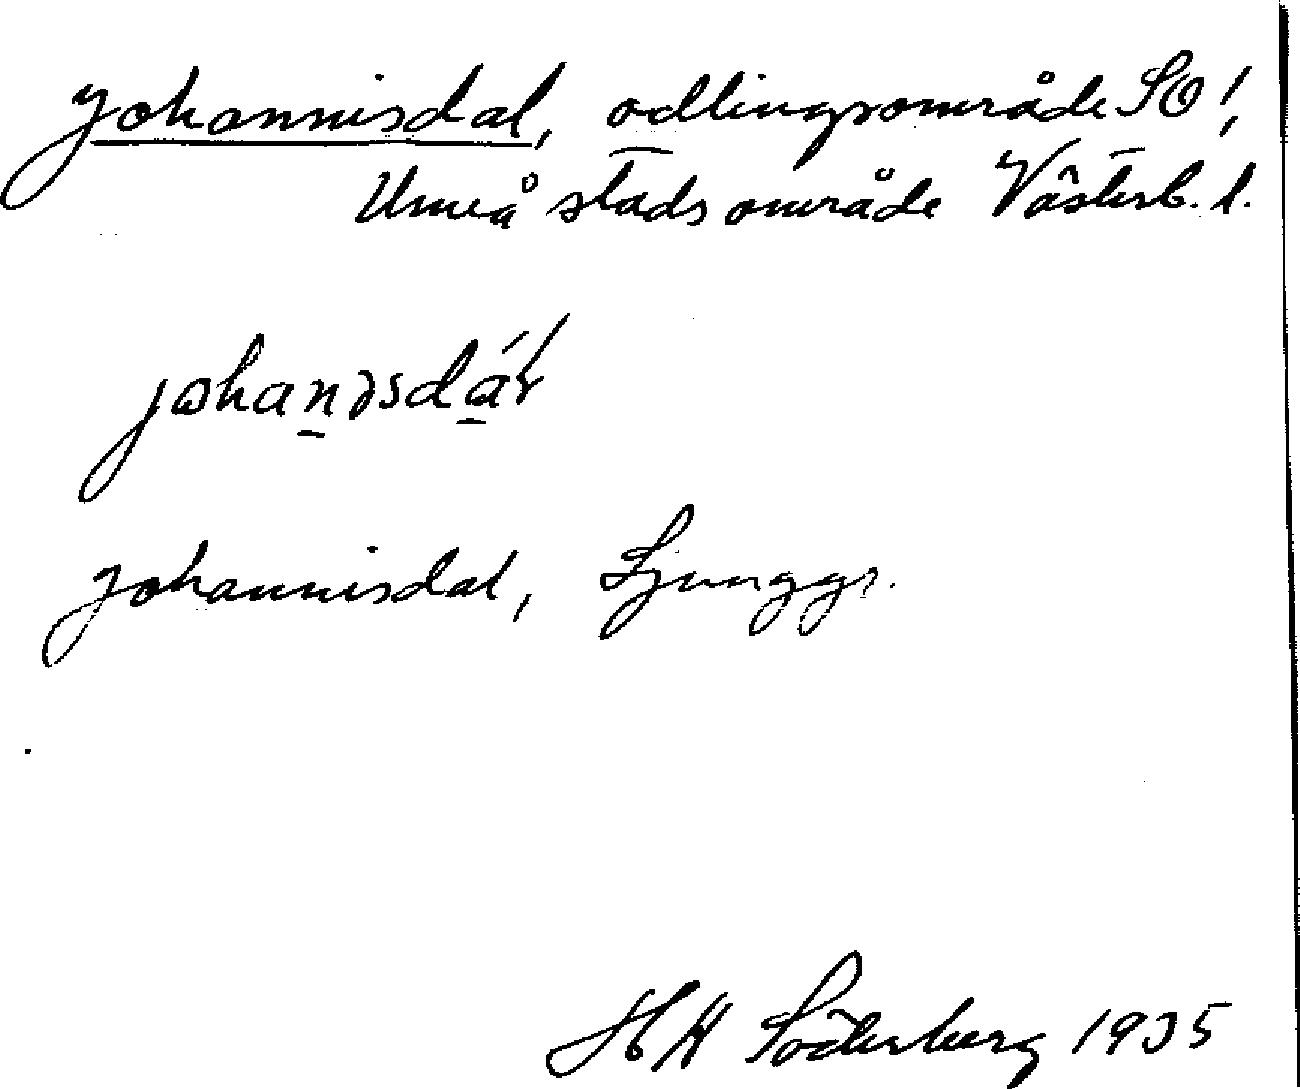 Johannisdal, odlingsområde SO!,
Umeå stadsområde Västerb. l.
johan̲əsda̲´ɫ
Johannisdal, Ljunggr.
H Söderberg 1935